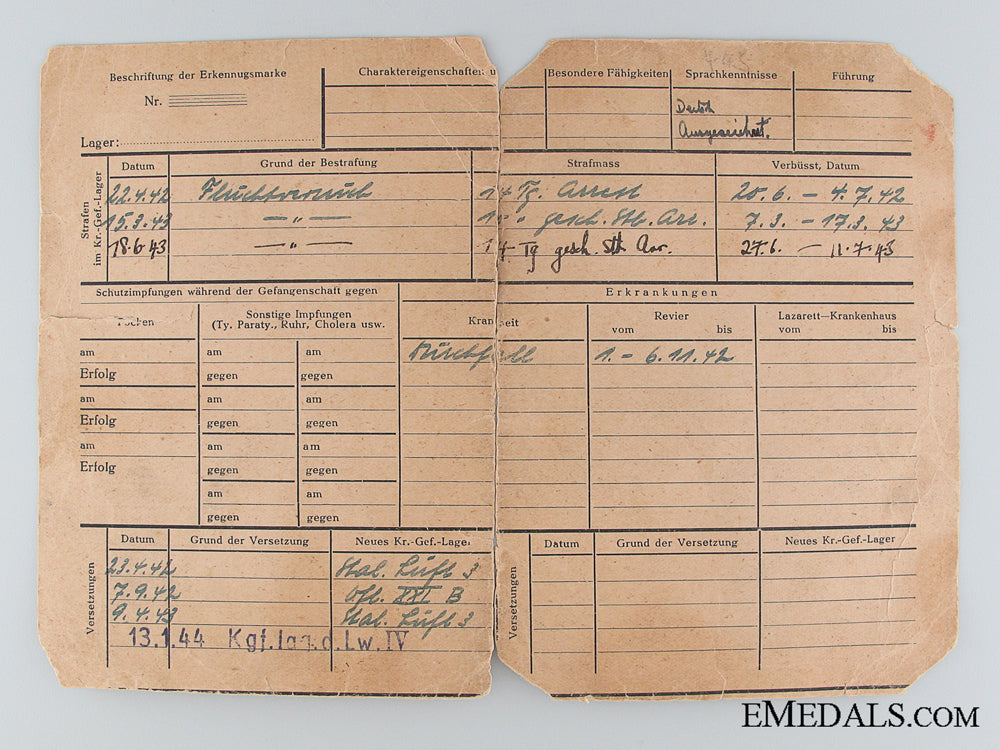 443
Beschriftung der Erkennugsmarke
Nr.
Lager:
Charaktereigenschaften u
Besondere Fähigkeiten
Sprachkenntnisse
Führung
Deutsch
Ausgezeichnet.
Strafen
im Kr.-Gef.-Lager
Datum Grund der Bestrafung Strafmass Verbüsst, Datum
22.4.42 Fluchtversuch 14 Tg. Arrest 20.6. – 4.7.42
15.3.43 — " — 10 " gesch. Stb. Arr. 7.3. – 17.3.43
18.6.43 — " — 14 Tg gesch. Stb Arr. 27.6. – 11.7.43
Schutzimpfungen während der Gefangenschaft gegen
Erkrankungen
Pocken
Sonstige Impfungen
(Ty. Paraty., Ruhr, Cholera usw.
Krankheit
Revier
vom bis
Lazarett—Krankenhaus
vom bis
Durchfall 1. – 6.11.42
am am am
Erfolg gegen gegen
am am am
Erfolg gegen gegen
am am am
Erfolg gegen gegen
am am
gegen gegen
Versetzungen
Datum Grund der Versetzung Neues Kr.-Gef.-Lager
23.4.42 Stal. Luft 3
7.9.42 Ofl. XXI B
9.4.43 Stal. Luft 3
13.1.44 Kgf.lag.d.Lw.IV
Versetzungen
Datum Grund der Versetzung Neues Kr.-Gef.-Lager
EMEDALS.COM